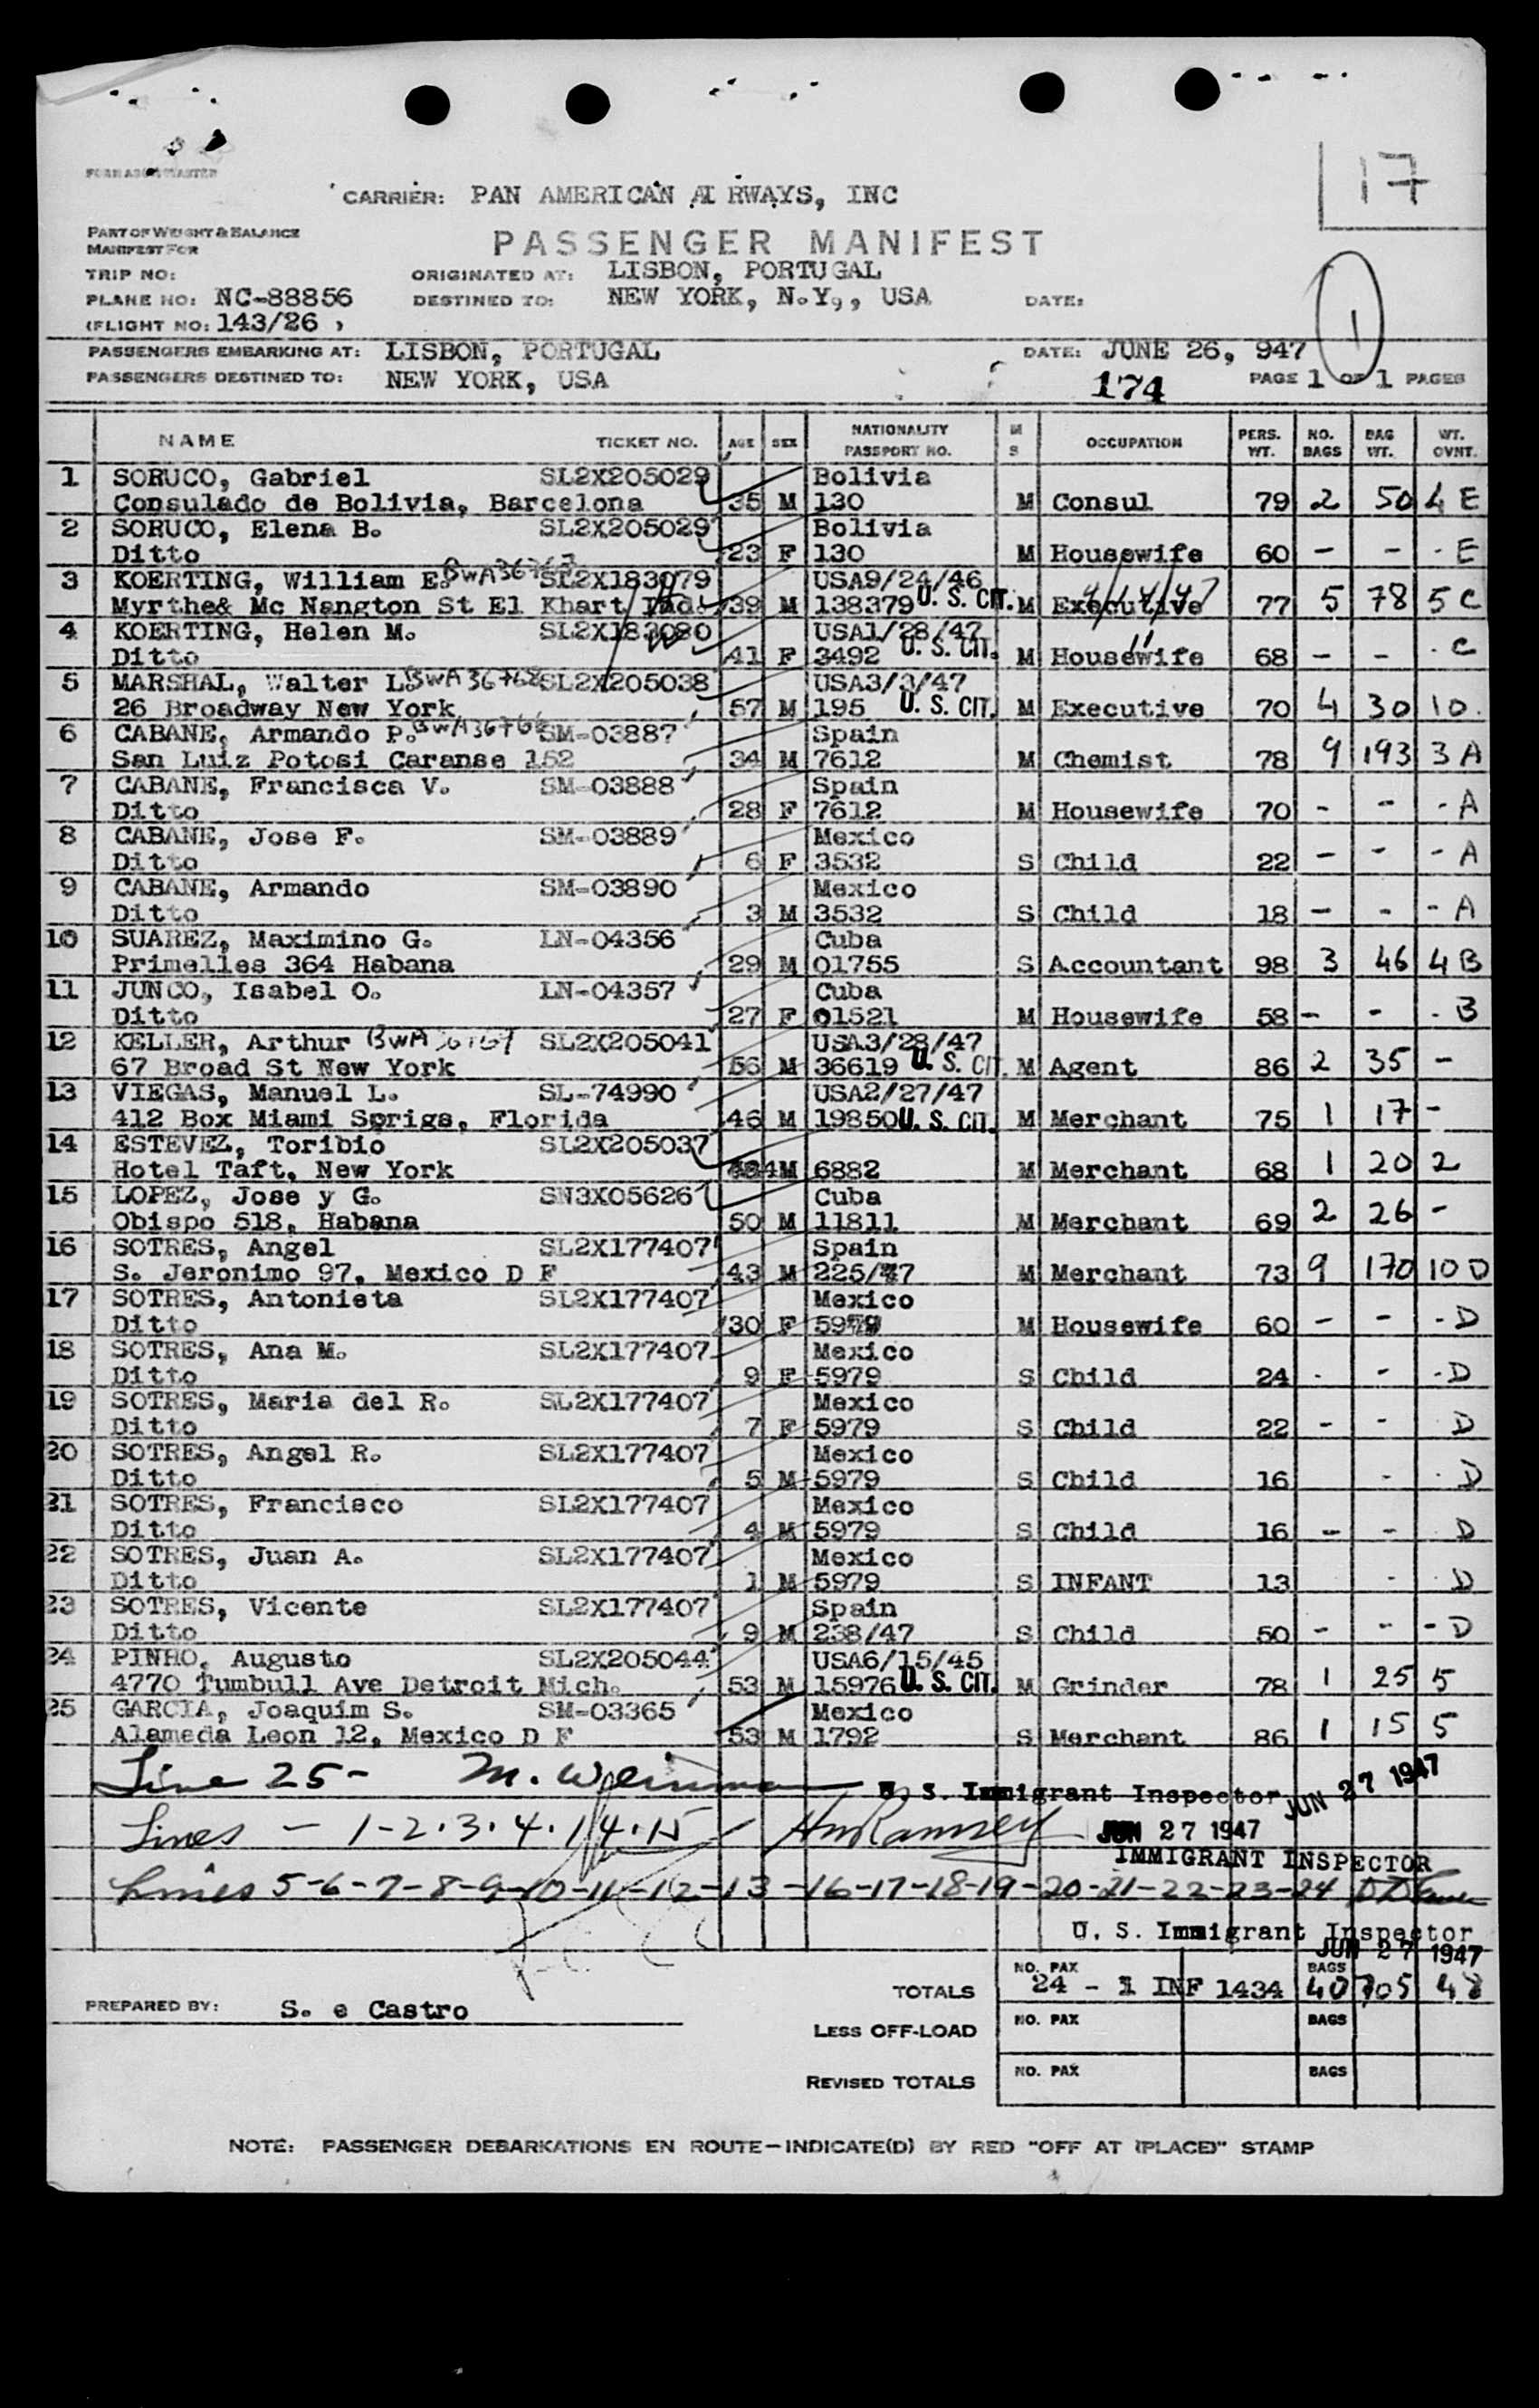 17
CARRIER: PAN AMERICAN AI RWAYS, INC
PART OF WEIGHT & BALANCE
MANIFEST FOR
PASSENGER MANIFEST
TRIP NO:
ORIGINATED AT: LISBON, PORTUGAL
PLANE NO: NC-88856
DESTINED TO: NEW YORK, N.Y,, USA
DATE:
(FLIGHT NO: 143/26 )
1
PASSENGERS EMBARKING AT: LISBON, PORTUGAL
DATE: JUNE 26, 947
PASSENGERS DESTINED TO: NEW YORK, USA
174
PAGE 1 OF 1 PAGES
NAME TICKET NO. AGE SEX NATIONALITY PASSPORT NO. M S OCCUPATION PERS. WT. NO. BAGS BAG WT. WT. OVNT.
1 SORUCO, Gabriel SL2X205029 Bolivia
Consulado de Bolivia, Barcelona 35 M 130 M Consul 79 2 50 4 E
2 SORUCO, Elena B. SL2X205029 Bolivia
Ditto 23 F 130 M Housewife 60 - - - E
3 KOERTING, William E. SL2X183079 USA9/24/46
Myrthe& Mc Nangton St El Khart Ind. 39 M 138379 U. S. CIT. M Executive 77 5 78 5 C
4 KOERTING, Helen M. SL2X183080 USA1/28/47
Ditto 41 F 3492 U. S. CIT. M Housewife 68 - - - C
5 MARSHAL, Walter L. BWA36768 SL2X205038 USA3/3/47
26 Broadway New York 57 M 195 U. S. CIT. M Executive 70 4 30 10
6 CABANE, Armando P. SM-03887 Spain
San Luiz Potosi Caranse 152 34 M 7612 M Chemist 78 9 193 3 A
7 CABANE, Francisca V. SM-03888 Spain
Ditto 28 F 7612 M Housewife 70 - - - A
8 CABANE, Jose F. SM-03889 Mexico
Ditto 6 F 3532 S Child 22 - - - A
9 CABANE, Armando SM-03890 Mexico
Ditto 3 M 3532 S Child 18 - - - A
10 SUAREZ, Maximino G. LN-04356 Cuba
Primelles 364 Habana 29 M 01755 S Accountant 98 3 46 4 B
11 JUNCO, Isabel O. LN-04357 Cuba
Ditto 27 F 01521 M Housewife 58 - - - B
12 KELLER, Arthur SL2X205041 USA3/28/47
67 Broad St New York 56 M 36619 U. S. CIT. M Agent 86 2 35 -
13 VIEGAS, Manuel L. SL-74990 USA2/27/47
412 Box Miami Sprigs, Florida 46 M 19850 U. S. CIT. M Merchant 75 1 17 -
14 ESTEVEZ, Toribio SL2X205037
Hotel Taft, New York M 6882 M Merchant 68 1 20 2
15 LOPEZ, Jose y G. SN3X05626 Cuba
Obispo 518, Habana 50 M 11811 M Merchant 69 2 26 -
16 SOTRES, Angel SL2X177407 Spain
S. Jeronimo 97, Mexico D F 43 M 225/47 M Merchant 73 9 170 10 D
17 SOTRES, Antonieta SL2X177407 Mexico
Ditto 30 F 5979 M Housewife 60 - - - D
18 SOTRES, Ana M. SL2X177407 Mexico
Ditto 9 F 5979 S Child 24 - - - D
19 SOTRES, Maria del R. SL2X177407 Mexico
Ditto 7 F 5979 S Child 22 - - D
20 SOTRES, Angel R. SL2X177407 Mexico
Ditto 5 M 5979 S Child 16 - - D
21 SOTRES, Francisco SL2X177407 Mexico
Ditto 4 M 5979 S Child 16 - - D
22 SOTRES, Juan A. SL2X177407 Mexico
Ditto 1 M 5979 S INFANT 13 - D
23 SOTRES, Vicente SL2X177407 Spain
Ditto 9 M 238/47 S Child 50 - - - D
24 PINHO, Augusto SL2X205044 USA6/15/45
4770 Tumbull Ave Detroit Mich. 53 M 15976 U. S. CIT. M Grinder 78 1 25 5
25 GARCIA, Joaquim S. SM-03365 Mexico
Alameda Leon 12, Mexico D F 53 M 1792 S Merchant 86 1 15 5
Line 25- M. Weinman U. S. Immigrant Inspector JUN 27 1947
Lines - 1-2.3.4.14.15 HmRamsey JUN 27 1947
IMMIGRANT INSPECTOR
Lines 5-6-7-8-9-10-11-12-13-16-17-18-19-20-21-22-23-24
U. S. Immigrant Inspector
JUN 27 1947
TOTALS NO. PAX 24 - 1 INF 1434 BAGS 40 705 48
PREPARED BY: S. e Castro
LESS OFF-LOAD NO. PAX BAGS
REVISED TOTALS NO. PAX BAGS
NOTE: PASSENGER DEBARKATIONS EN ROUTE-INDICATE(D) BY RED "OFF AT (PLACE)" STAMP